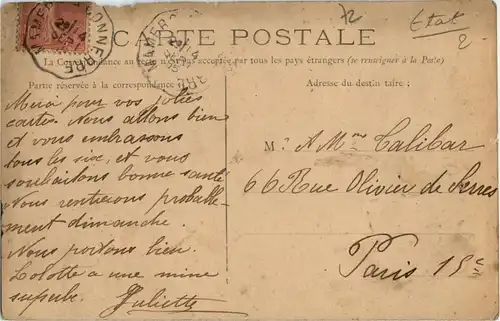 72
Etat
2-
CARTE POSTALE
La Correspondance au recto n'est pas acceptée par tous les pays étrangers (se renseigner à la Poste)
Partie réservée à la correspondance
Adresse du destinataire :
MAMERS A CONNERRE
Merci pour vos jolies
cartes. Nous allons bien
et vous embrassons
tous les six, et vous
souhaitons bonne santé
Nous rentrerons probable-
ment dimanche.
Nous portons bien.
Lolotte a une mine
superbe. Juliette
M. A Mme Calibar
66 Rue Olivier de Serres
Paris 15e